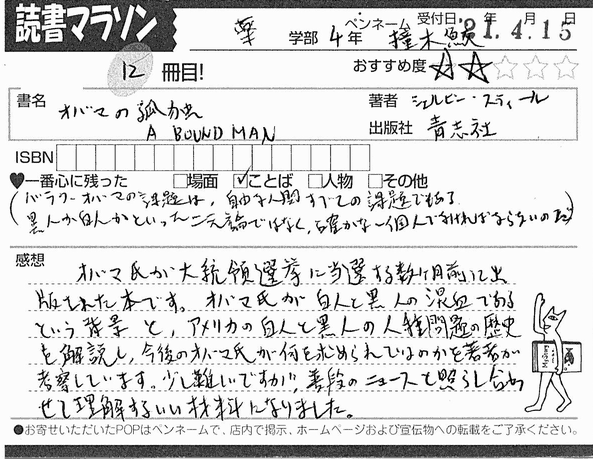 読書マラソン
薬 学部 4年 ペンネーム 撞木鮫 受付日 '21年 4月 15日
12 冊目! おすすめ度 ★★☆☆☆
書名 オバマの孤独 著者 シェルビー・スティール
A BOUND MAN 出版社 青志社
ISBN
♥一番心に残った □場面 ☑ことば □人物 □その他
(バラク・オバマの課題は、自由な人間すべての課題である
黒人か白人かといった二元論ではなく、確かな一個人でなければならないのだ)
感想
オバマ氏が大統領選挙に当選する数ヶ月前に出
版された本です。オバマ氏が白人と黒人の混血である
という背景と、アメリカの白人と黒人の人種問題の歴史
を解説し、今後のオバマ氏が何を求められているのかを著者が
考察しています。少し難いですが、普段のニュースと照らし合わ
せて理解するいい材料になりました。
●お寄せいただいたPOPはペンネームで、店内で掲示、ホームページおよび宣伝物への転載をご了承ください。